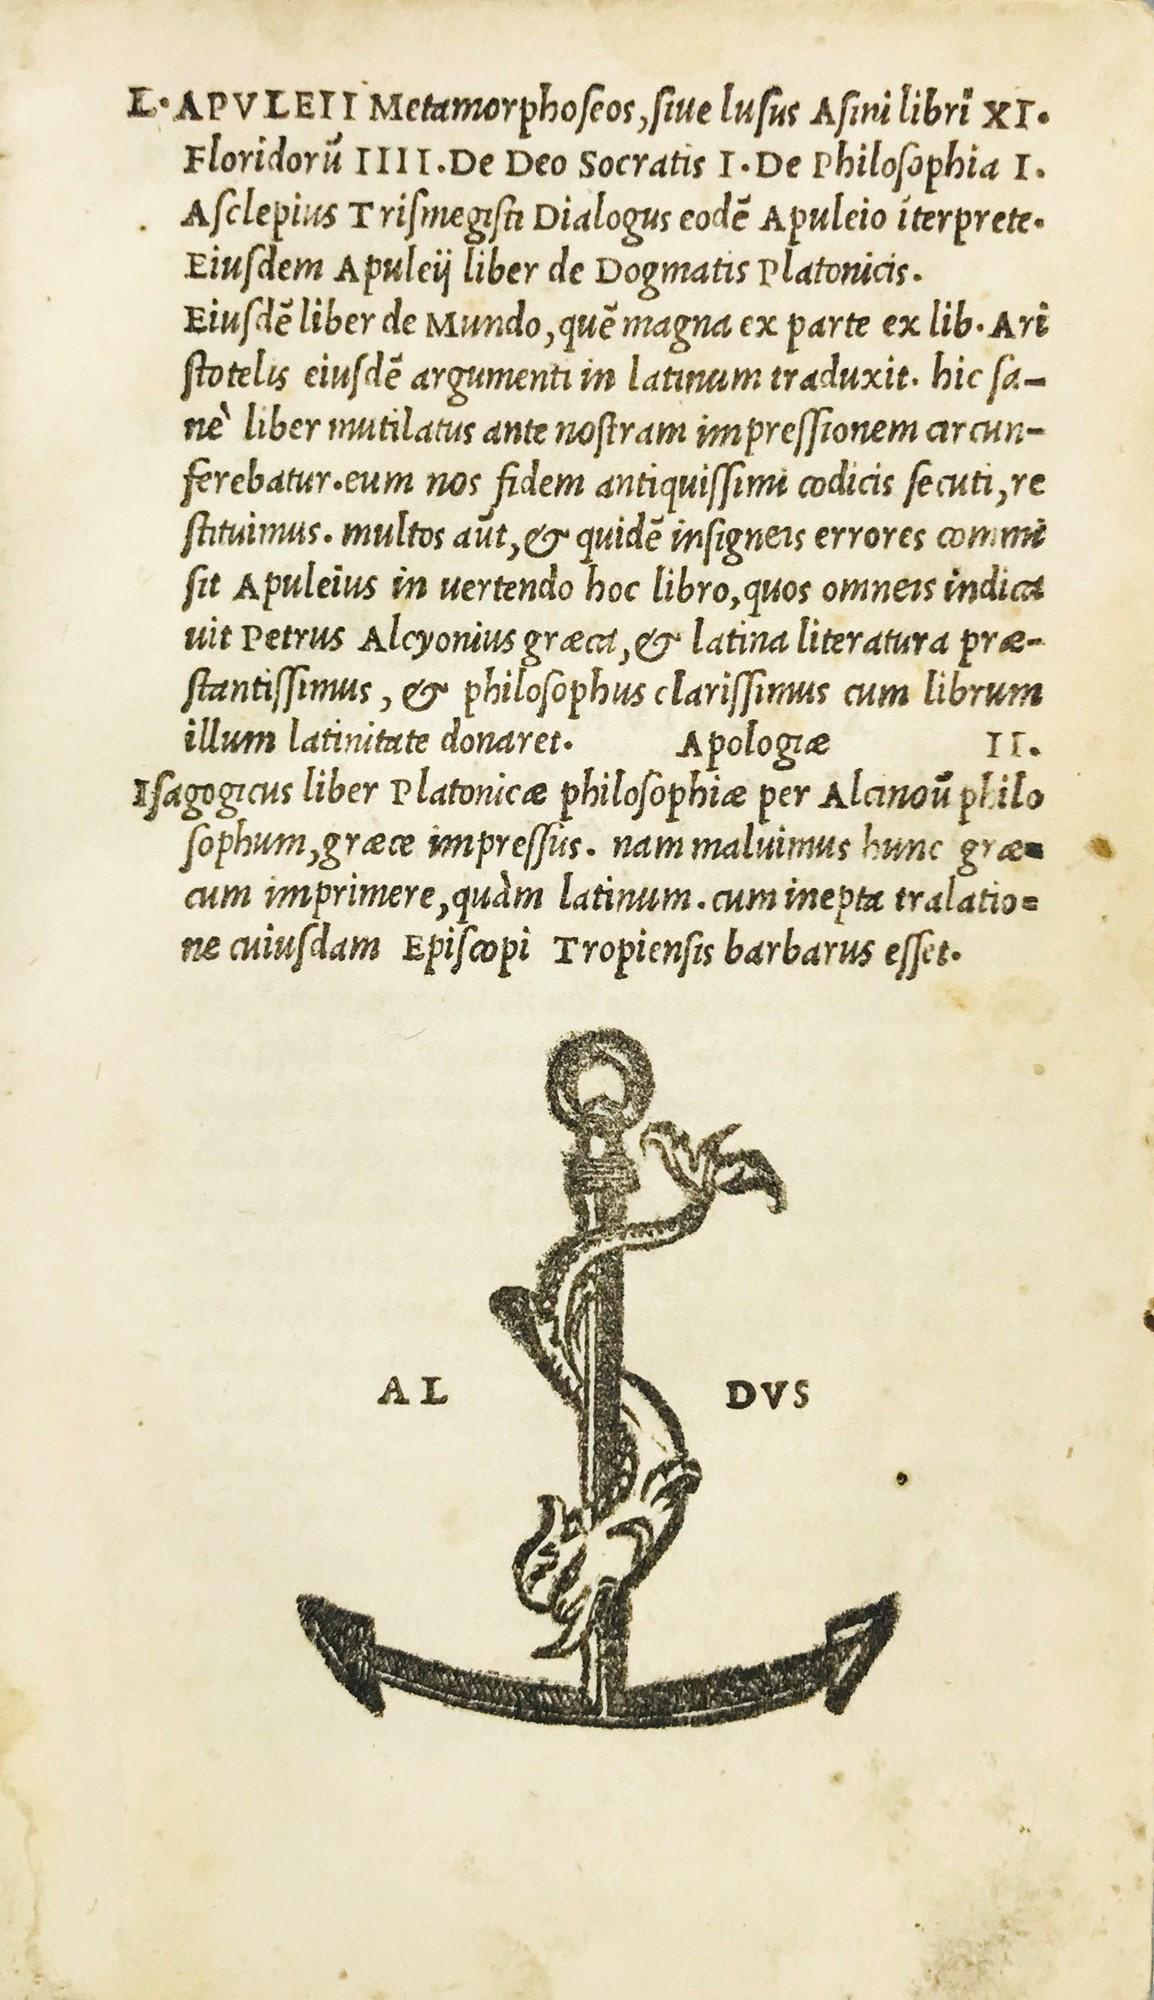 L·APVLEII Metamorphoſeos, ſiue luſus Aſini libri XI.
Floridorū IIII. De Deo Socratis I. De Philoſophia I.
Aſclepius Triſmegiſti Dialogus eodē Apuleio īterprete.
Eiuſdem Apuleij liber de Dogmatis Platonicis.
Eiuſdē liber de Mundo, quē magna ex parte ex lib. Ari
ſtotelis eiuſdē argumenti in latinum traduxit. hic ſa-
nè liber mutilatus ante noſtram impreſſionem circun-
ferebatur. eum nos fidem antiquiſſimi codicis ſecuti, re
ſtituimus. multos aūt, & quidē inſigneis errores commi
ſit Apuleius in uertendo hoc libro, quos omneis indica
uit Petrus Alcyonius græca, & latina literatura præ-
ſtantiſſimus, & philoſophus clariſſimus cum librum
illum latinitate donaret. Apologiæ II.
Iſagogicus liber Platonicæ philoſophiæ per Alcinoū philo
ſophum, græce impreſſus. nam maluimus hunc græ-
cum imprimere, quàm latinum. cum inepta tralatio=
ne cuiuſdam Epiſcopi Tropienſis barbarus eſſet.
AL DVS